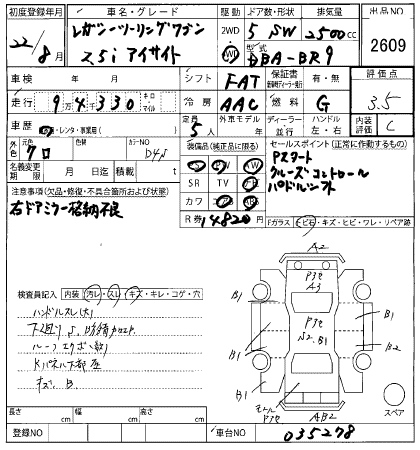 初度登録年月 車名・グレード 駆動 ドア数・形状 排気量 出品NO
22/8月 レガシーツーリングワゴン 2WD 5 SW 2500cc
2.5i アイサイト 型式 DBA-BR9 2609
車検 年 月 シフト FAT 保証書 有・無 評価点
走行 9万4330 キロ・マイル 冷房 AAC 燃料 G 3.5
車歴 レンタ・事業用( ) 定員 5人 外車モデル 年 ディーラー・並行 ハンドル 左・右 内装評価 C
外色 元色 クロ 色替 カラーNO D4S 装備品(純正品に限る) セールスポイント(正常に作動するもの)
名義変更期限 月 日迄 積載 t SR TV Pスタート
クルーズコントロール
パドルシフト
注意事項(欠品・修復・不具合箇所および状態) カワ
右ドアミラー格納不良 R券 14820円 Fガラス ヒビ石・キズ・ヒビ・ワレ・リペア跡
A2
検査員記入 内装 汚レ・スレ・キズ・キレ・コゲ・穴
ハンドルスレ(大)
下廻りS.
ルーフエクボ数ヶ
Kパネル下部
キズ、B.
B1
A3
B1
B1
B2
B1
AB2
スペア
長さ cm 幅 cm 高さ cm
登録NO 車台NO 035278